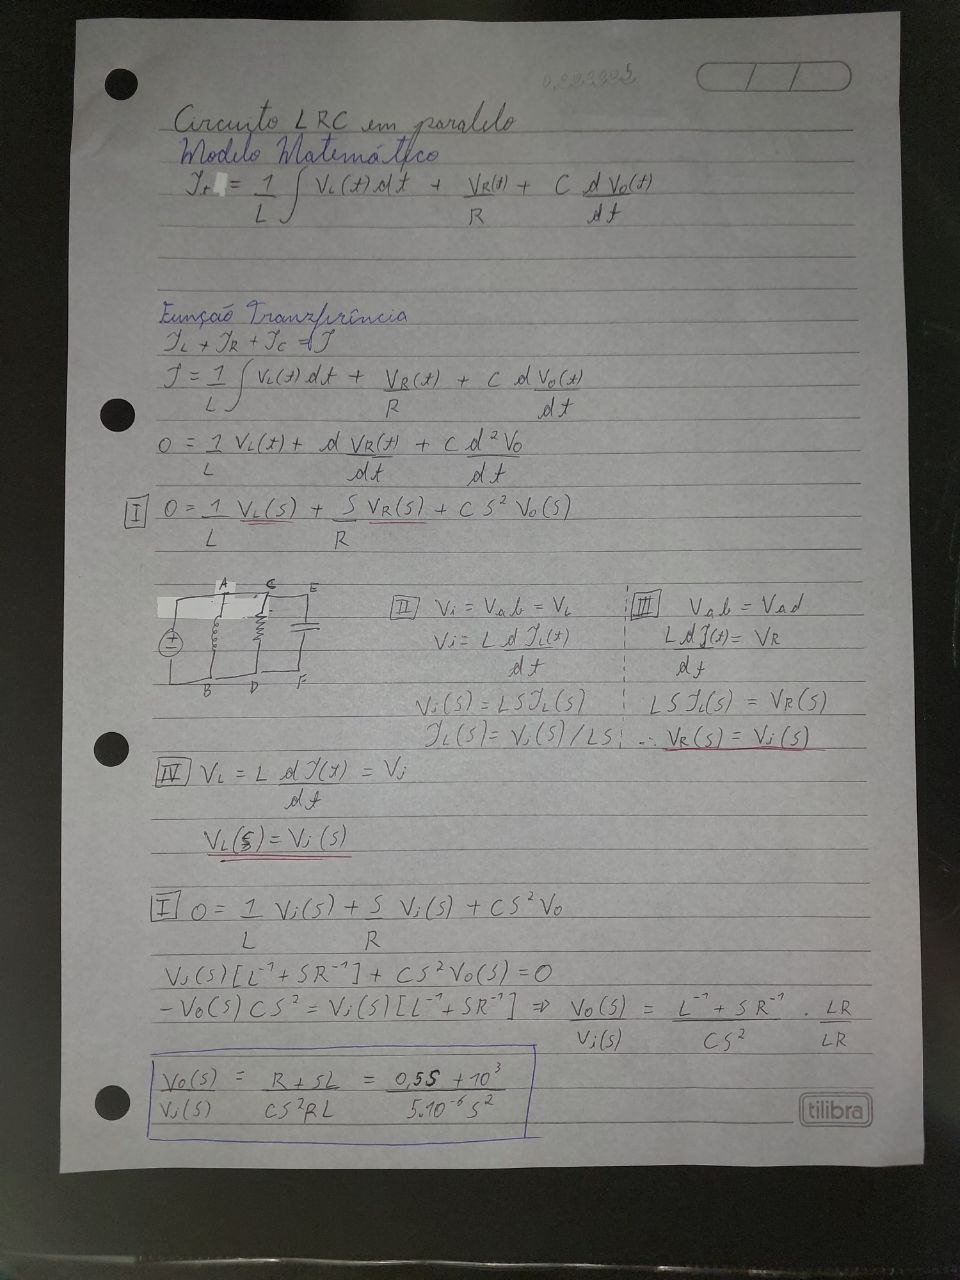 0,223225
Circuito LRC em paralelo
Modelo Matemático
I_t = 1/L ∫ V_L(t) dt + V_R(t)/R + C d V_o(t)/dt
Função Tranzferência
I_L + I_R + I_C = I
I = 1/L ∫ V_L(t) dt + V_R(t)/R + C d V_o(t)/dt
0 = 1/L V_L(t) + d V_R(t)/dt + C d² V_o/dt
I 0 = 1/L V_L(s) + S/R V_R(s) + C S² V_o(s)
A C E
B D F
II Vi = Vab = V_L
Vi = L d I_L(t)/dt
Vi(s) = L S I_L(s)
I_L(s) = Vi(s) / LS
III Vab = Vad
L d I(t)/dt = V_R
L S I_L(s) = V_R(s)
∴ V_R(s) = Vi(s)
IV V_L = L d I(t)/dt = Vi
V_L(s) = Vi(s)
I 0 = 1/L Vi(s) + S/R Vi(s) + C S² Vo
Vi(s) [L⁻¹ + S R⁻¹] + C S² Vo(s) = 0
- Vo(s) C S² = Vi(s) [L⁻¹ + S R⁻¹] ⇒ Vo(s)/Vi(s) = L⁻¹ + S R⁻¹/CS² . LR/LR
Vo(s)/Vi(s) = R + SL/CS²RL = 0,5S + 10³/5.10⁻⁶ S²
tilibra